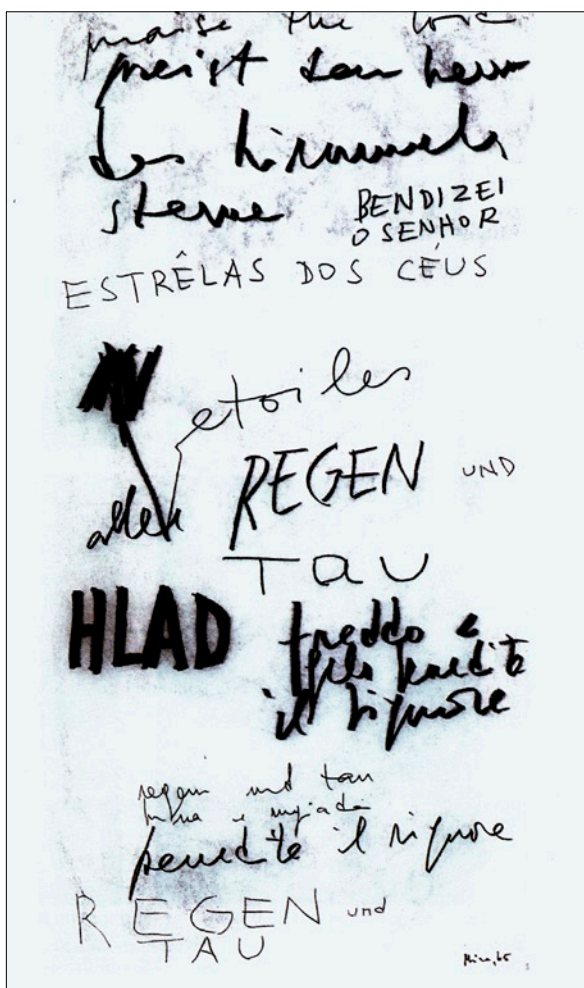 praise the lord
preist den herrn
des himmels
sterne
BENDIZEI
O SENHOR
ESTRÊLAS DOS CÉUS
etoiles
REGEN UND
TAU
HLAD
freddo e
gelo benedite
il signore
regen und tau
benedite il signore
REGEN und
TAU